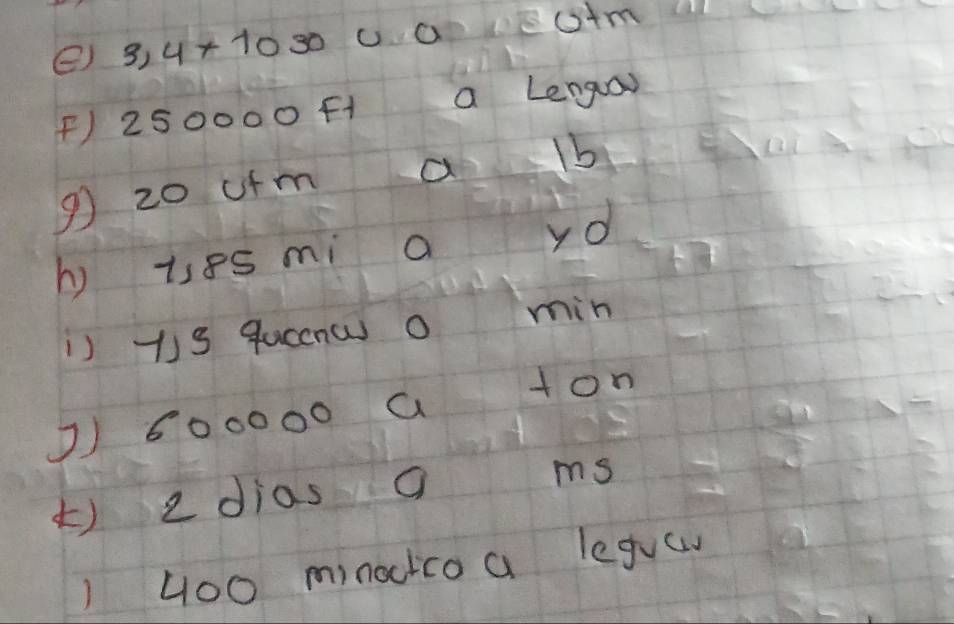 e) 3,4 + 1030 u a utm
F) 250000 Ft a Lenguas
g) 20 utm a lb
h) 1,85 mi a yd
i) 1,5 quccnas a min
J) 600000 a ton
k) 2 dias a ms
) 400 minautco a leguas